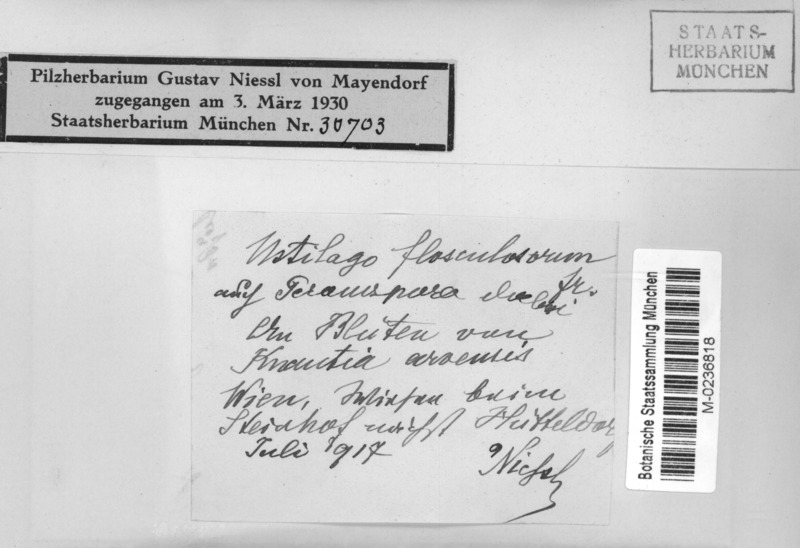 STAATS-
HERBARIUM
MÜNCHEN
Pilzherbarium Gustav Niessl von Mayendorf
zugegangen am 3. März 1930
Staatsherbarium München Nr. 30703
Ustilago flosculosorum
fr.
auf
An Blüten von
Knautia arvensis
Wien, Wiesen beim
Steinhof nächst Hütteldorf
Juli 1917
Niessl
Botanische Staatssammlung München
M-0236818